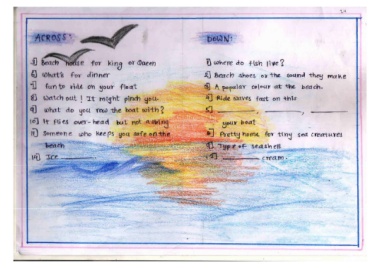 ACROSS:
3] Beach house for king or Queen
6] What's for dinner
7] fun to ride on your float
8] Watch out! It might pinch you
9] what do you row the boat with?
10] It flies over-head but not a
Someone who keeps you safe on the
beach
14] Ice
DOWN:
1] where do fish live?
2] Beach shoes or the sound they make
A popular colour at the beach.
4] Ride waves fast on this
your boat
Pretty home for tiny sea creatures
Type of seashell
cream.